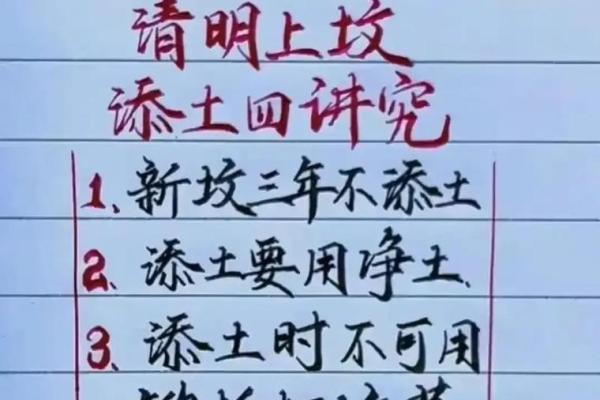 清明上坟
添土四讲究
1、新坟三年不添土
2、添土要用净土、
3、添土时不可用